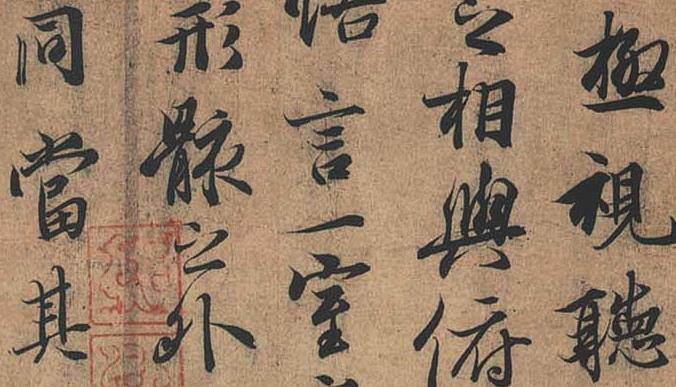 極視聽
之相與俯
悟言一室之
形骸之外
同當其